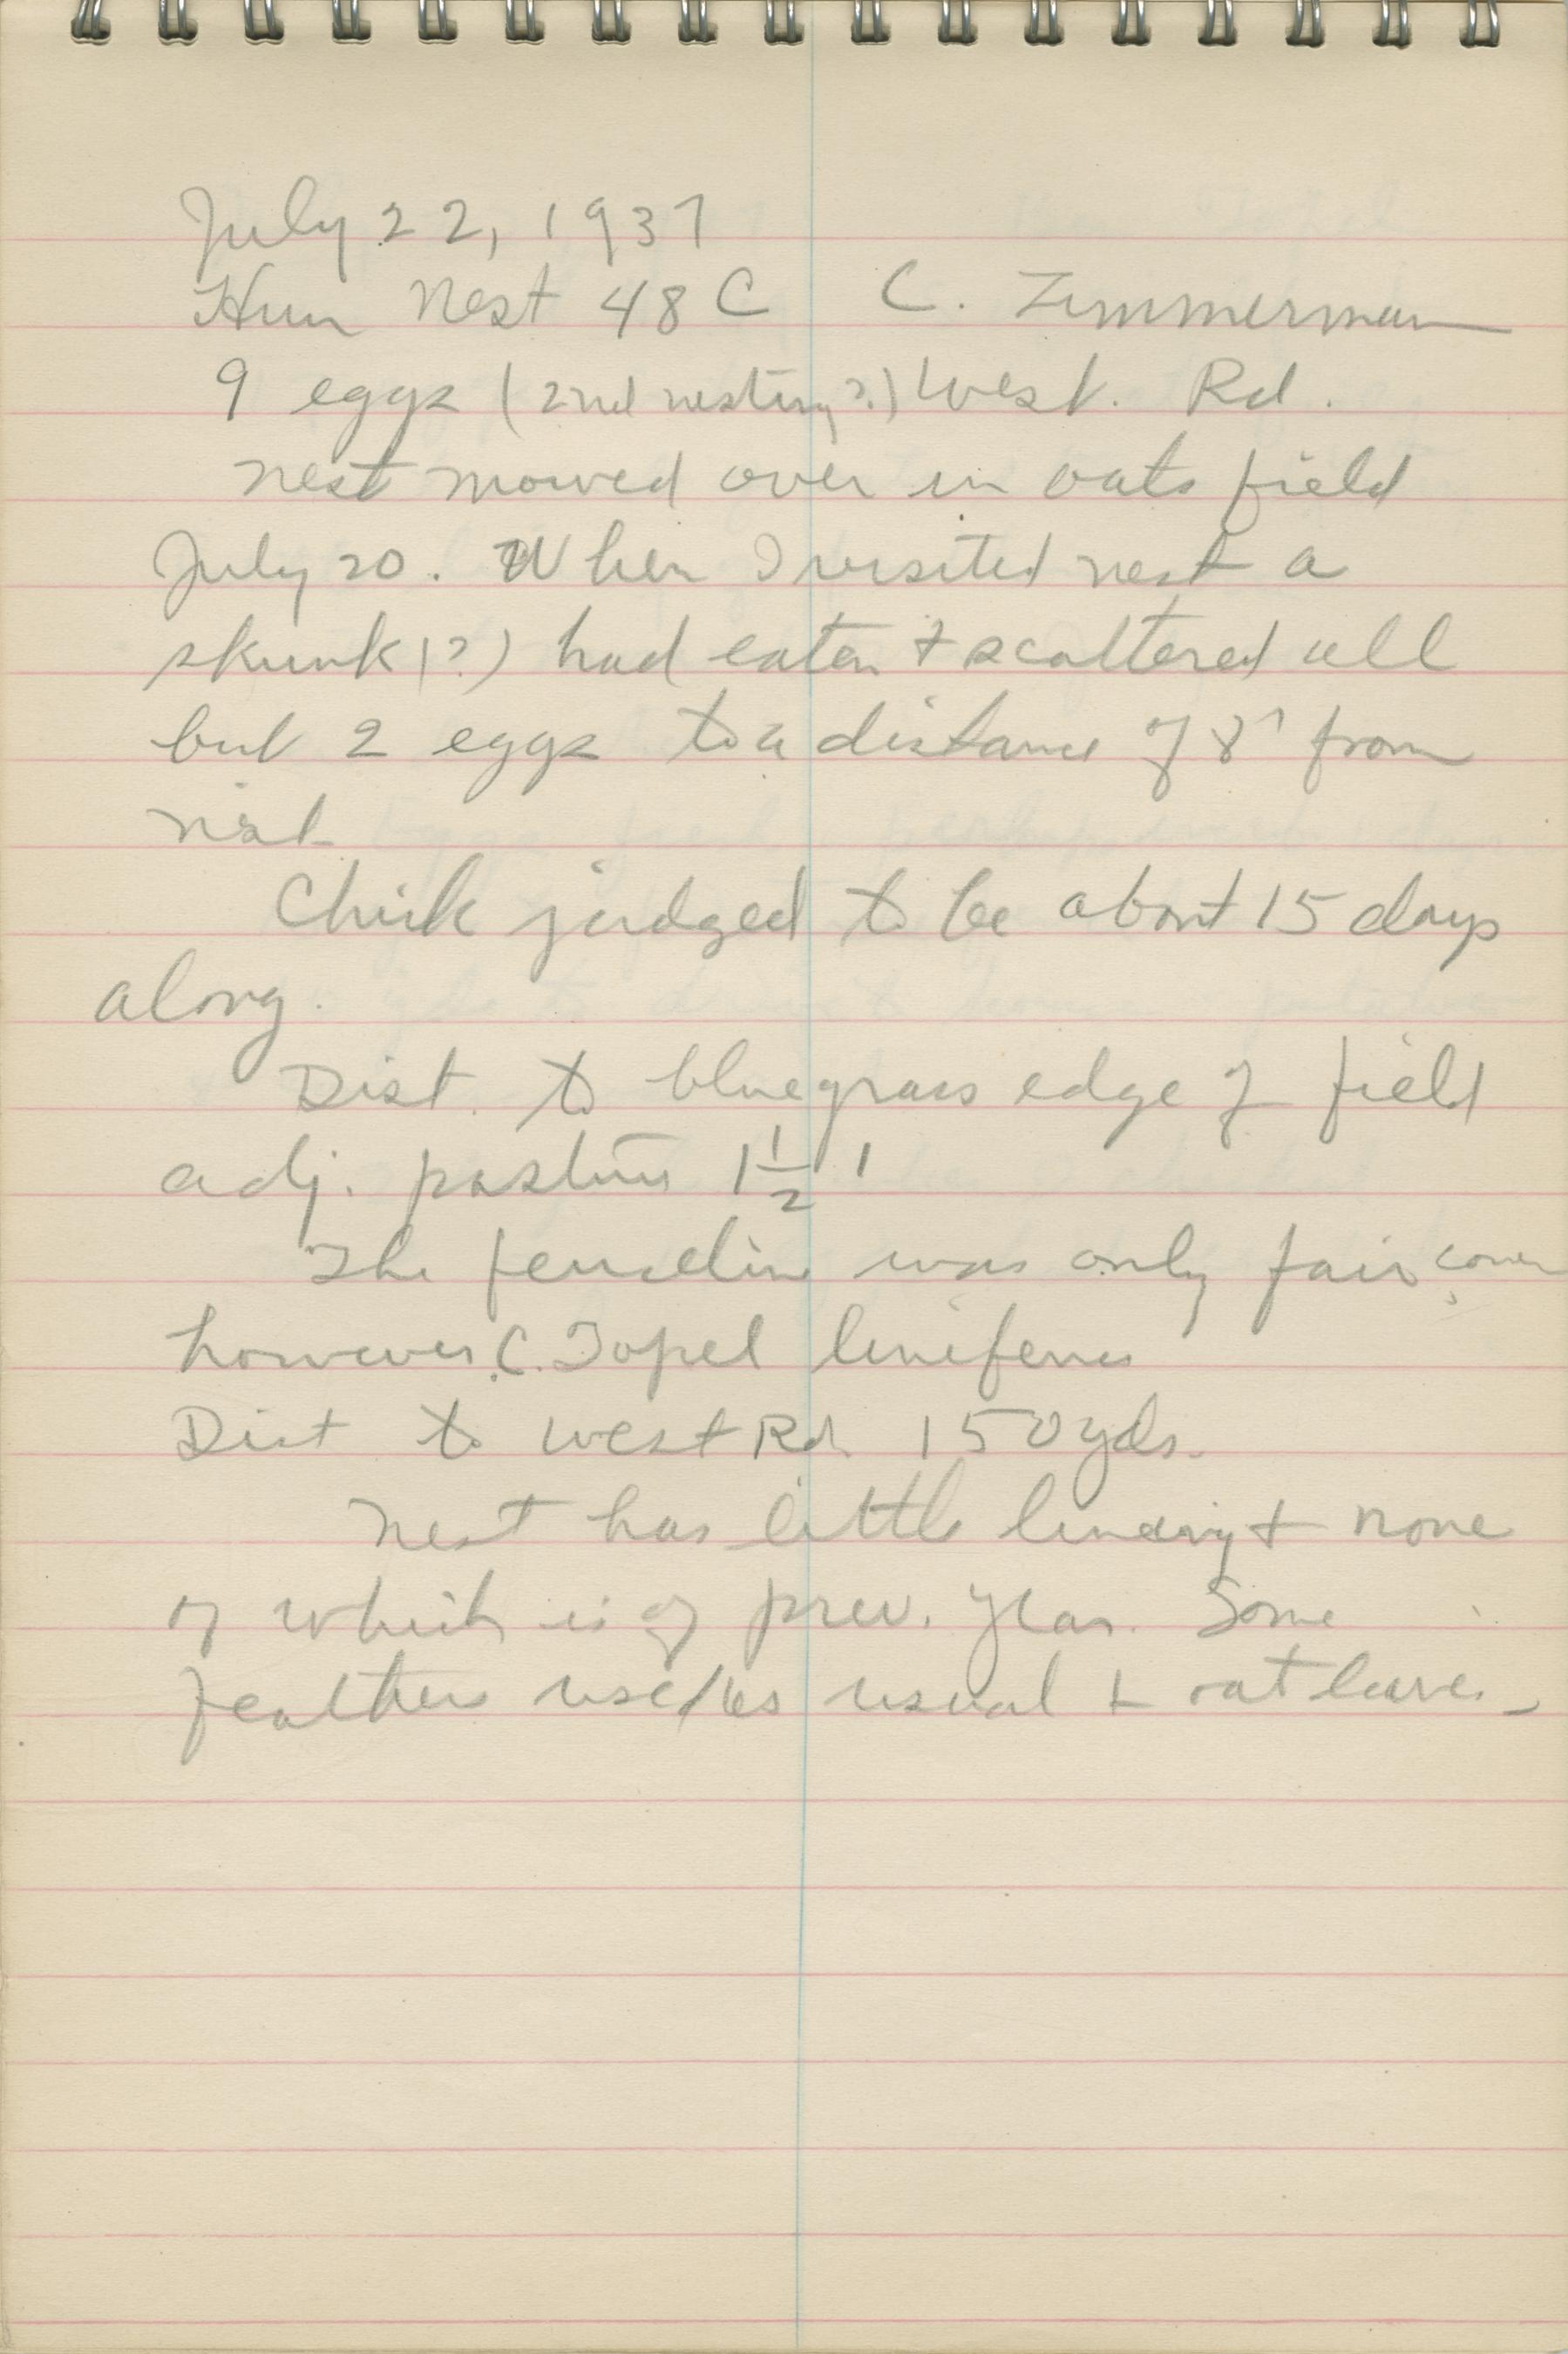 July 22, 1937
Hun Nest 48 C C. Zimmerman
9 eggs (2nd nesting?) West. Rd.
nest mowed over in oats field
July 20. When I visited nest a
skunk(?) had eaten & scattered all
but 2 eggs to a distance of 8' from
nest
Chick judged to be about 15 days
along.
Dist. to bluegrass edge of field
adj. pasture 1 1/2'
The fenceline was only fair cover
however. C. Topel linefence
Dist to West Rd. 150 yds.
Nest has little lining & none
of which is of prev. year. Some
feathers used as usual & oat leaves